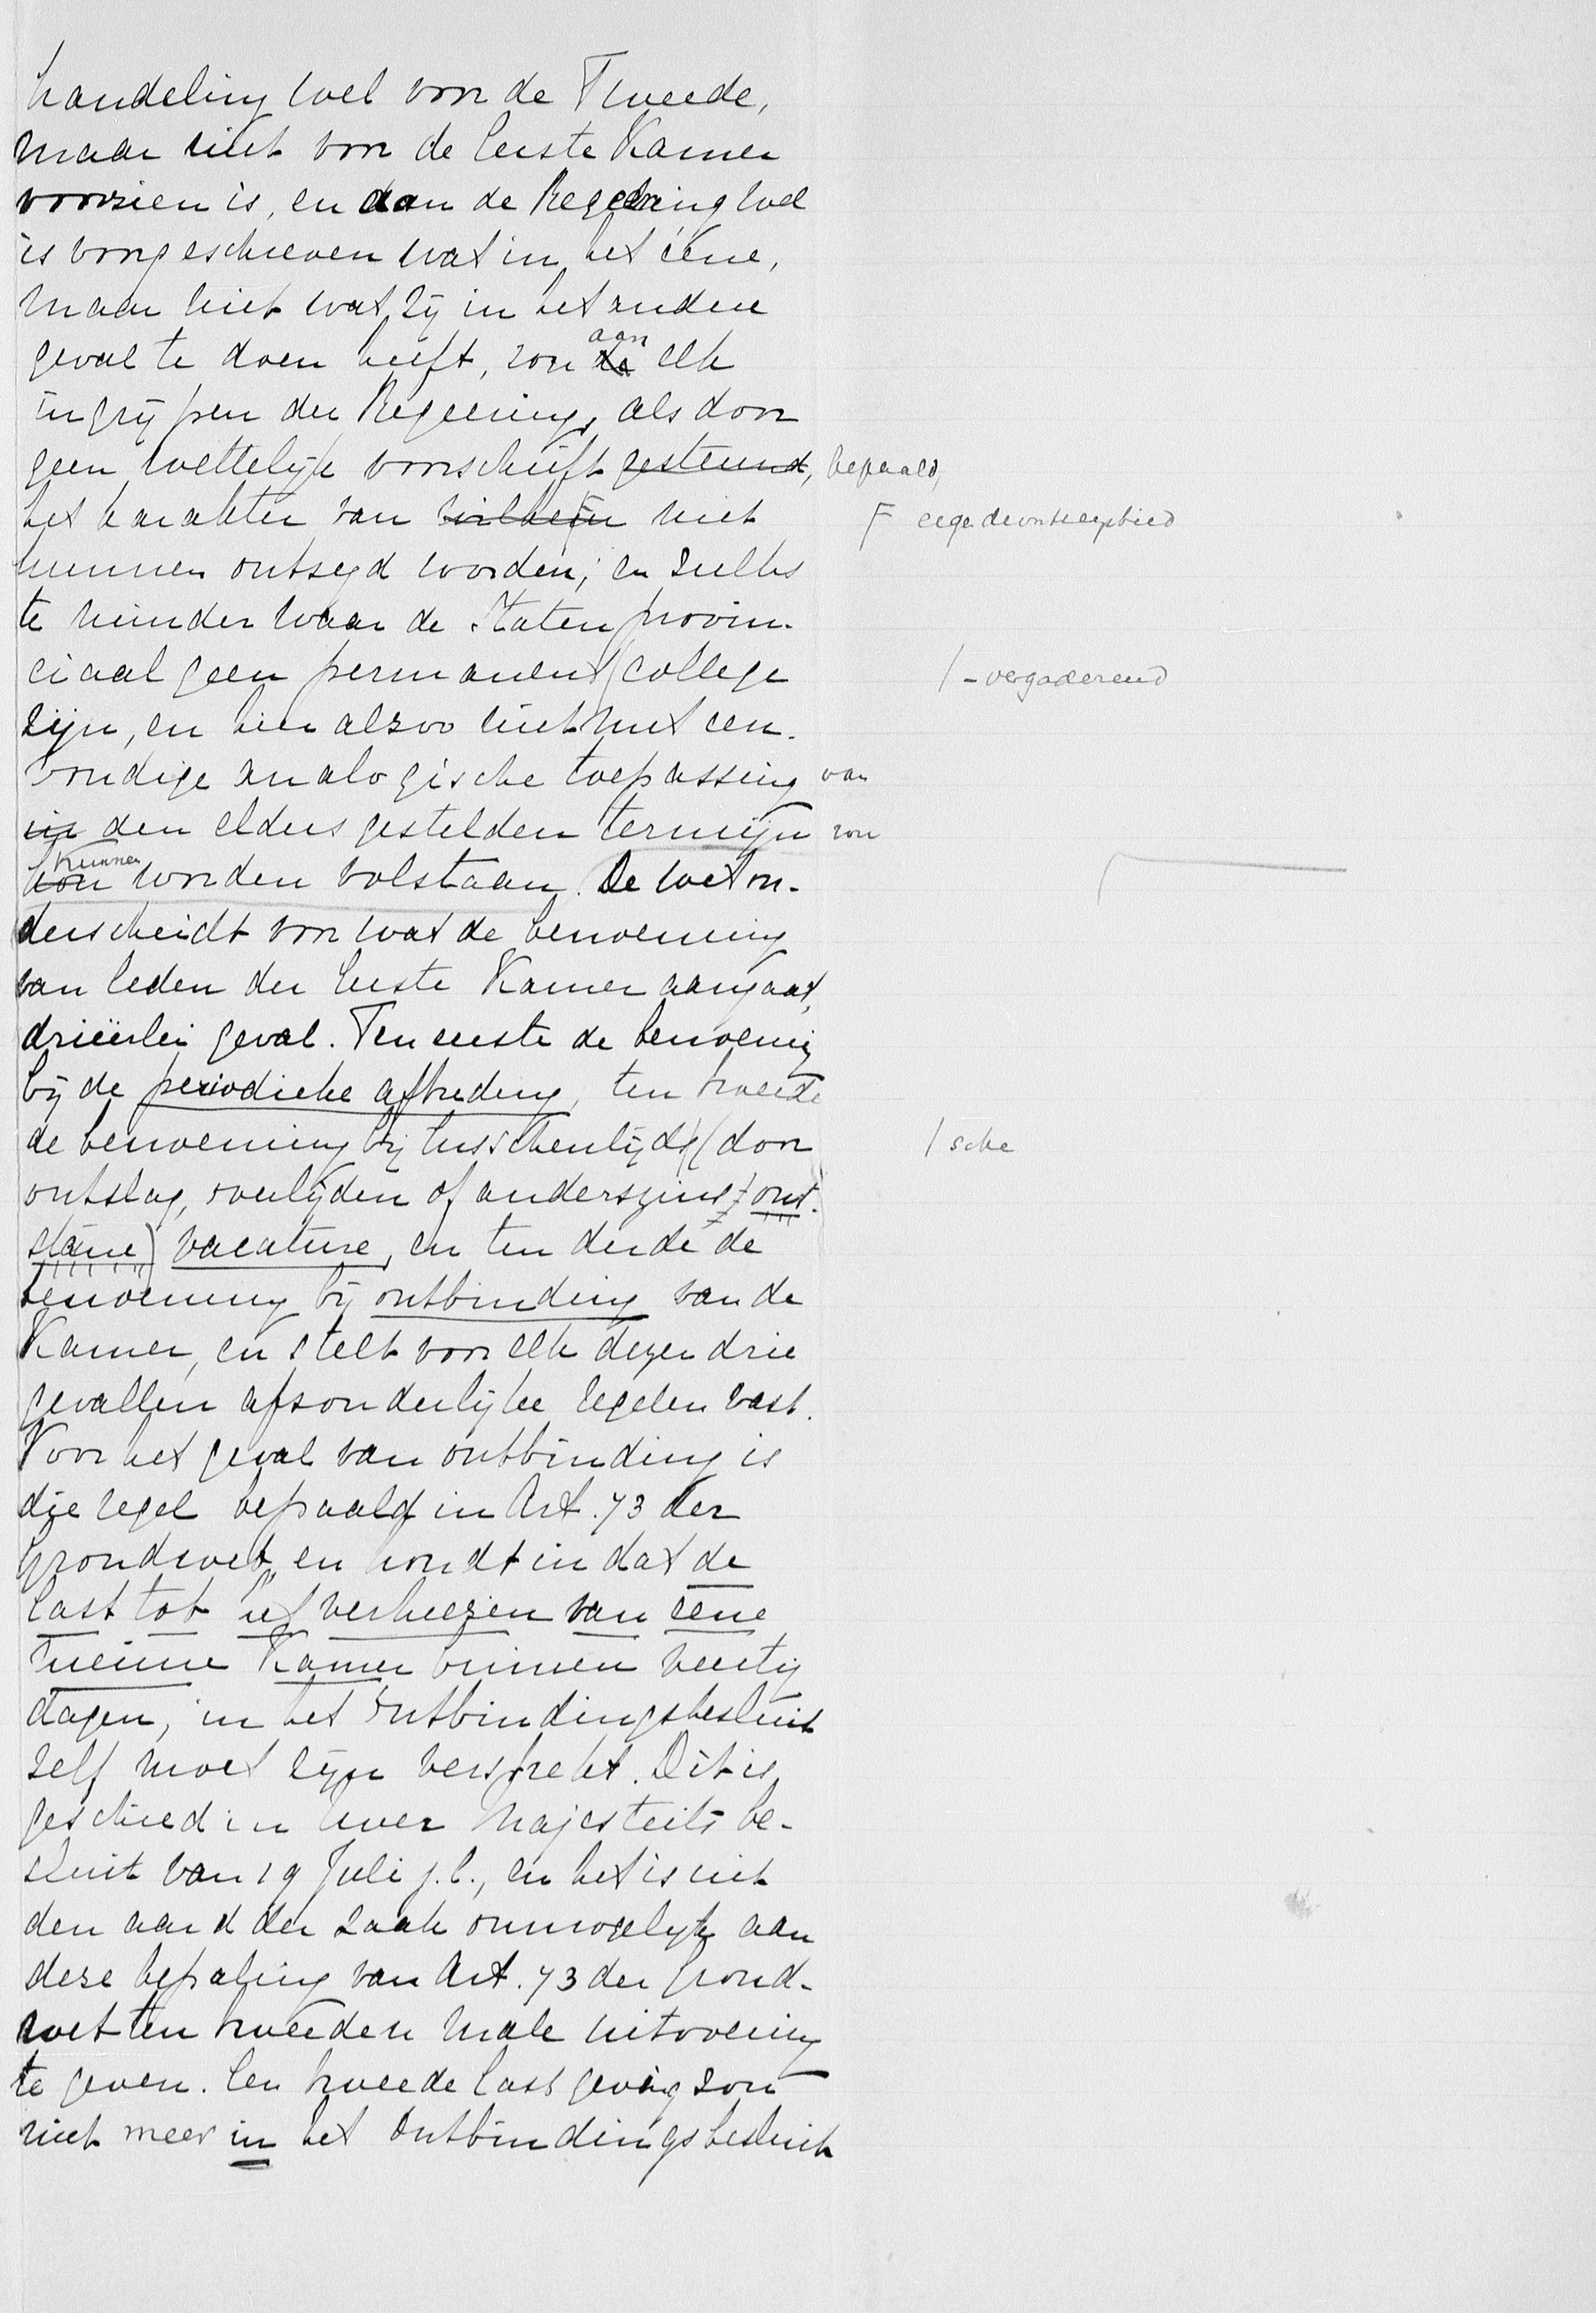 handeling wel voor de Tweede,
maar niet voor de Eerste Kamer
voorzien is, en dan de Regeering wel
is voorgeschreven wat in het ééne,
maar niet wat zij in het andere
geval te doen heeft, zou aan elk
ingrijpen der Regeering, als door
geen wettelijk voorschrift gesteund, bepaald,
het karakter van niet
kunnen ontzegd worden; en zulks
te minder waar de Staten provin-
ciaal geen permanent college / - vergaderend
zijn, en hier alzoo niet met een-
voudige analogische toepassing van
in den elders gestelden termijn zou
kunnen worden volstaan. De wet on-
derscheidt voor wat de benoeming
van leden der Eerste Kamer aangaat,
drieërlei geval. Ten eerste de benoeming
bij de periodieke aftreding, ten tweede
de benoeming bij tusschentijds (door / sche
ontslag, overlijden of anderszins ont-
stane) vacature, en ten derde de
benoeming bij ontbinding van de
Kamer, en stelt voor elk dezer drie
gevallen afzonderlijke regelen vast.
Voor het geval van ontbinding is
die regel bepaald in Art. 73 der
Grondwet, en houdt in dat de
last tot het verkiezen van eene
nieuwe Kamer binnen veertig
dagen, in het Ontbindingsbesluit
zelf moet zijn verstrekt. Dit is
geschied in Uwer Majesteits be-
sluit van 19 Juli j.l., en het is uit
den aard der zaak onmogelijk aan
deze bepaling van Art. 73 der Grond-
wet ten tweeden male uitvoering
te geven. Een tweede lastgeving zou
niet meer in het Ontbindingsbesluit